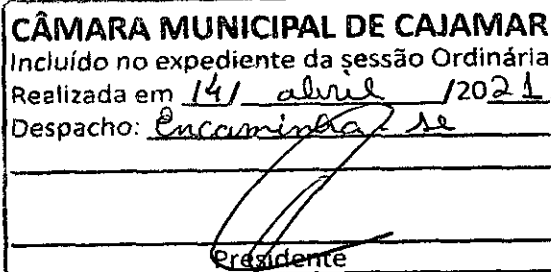 CÂMARA MUNICIPAL DE CAJAMAR
Incluído no expediente da sessão Ordinária
Realizada em 14/ abril /2021
Despacho: Encaminha-se
Presidente